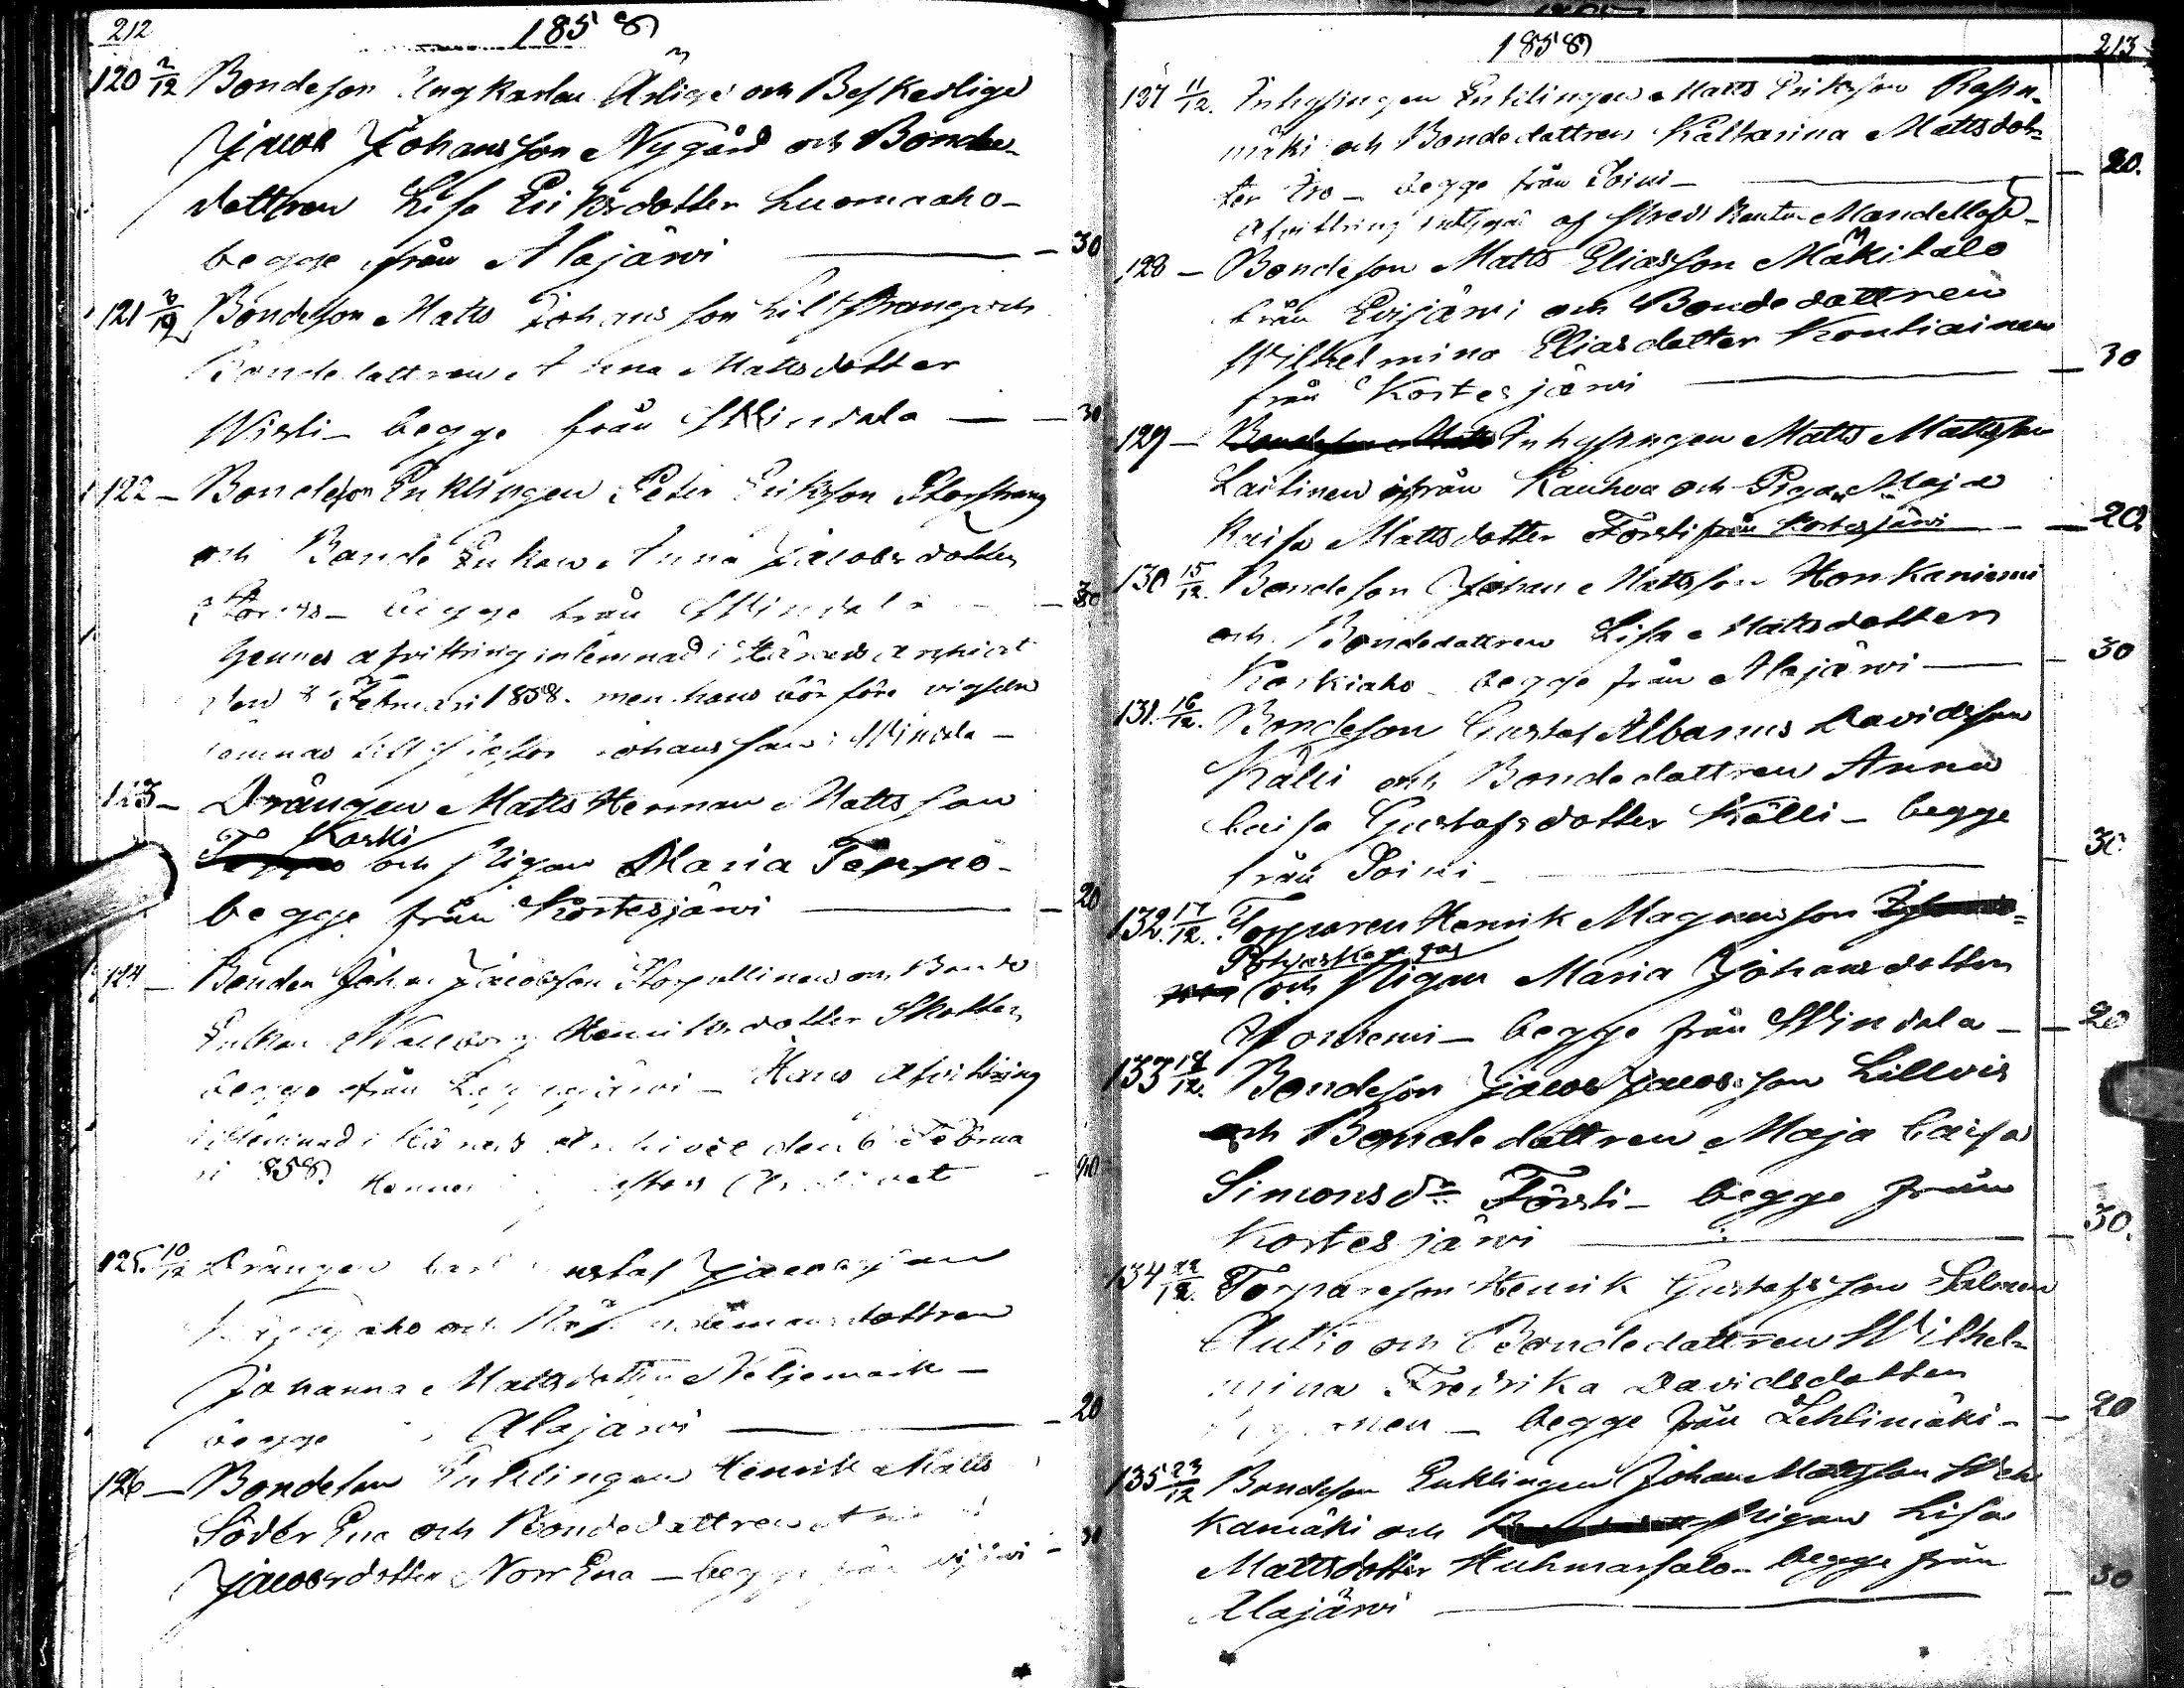 212
1858
120 2/12 Bondeson Ungkarlen Ärlige och Beskedlige
Jacob Johansson Nygård och Bonde-
dottren Lisa Eriksdotter Luomaaho -
begge från Alajärvi — 30
121 3/12 Bondeson Matts Johansson Lillstrang och
Bondedattren Anna Mattsdotter
Wirsti - begge från Windala — 30
122 - Bondeson Enklingen Peter Eriksson Storstrang
och Bonde Enkan Anna Jacobsdotter
begge från Windala — 30
Hennes afvittring inlemnad i Härads archivet
den Februari 1858. men hans bör före vigseln
lemnas till Johansson i Windala -
123 - Drängen Matts Herman Mattsson
Koski
och Pigan Maria Teppo -
begge från Kortesjärvi — 20
124 - Bonden Johan Jacobsson Storpullinen och Bonde
Enkan Walborg Henriksdotter Skotter
begge från Lappajärvi - Hans afvittring
inlemnad i Härads Archivet den 6 Februa
ri 1858. Hennes Archivet — 90
125. 10/12 Drängen Carl Gustaf Jacobsson
aho och dottren
Johanna Mattsdotter Neljemark -
begge Alajärvi — 20
126 - Bondeson Enklingen Henrik Matts
Söder Ena och Bondedattren
Jacobsdotter Norr Ena - begge från — 30
1858
213
127 11/12. Inhysingen Enklingen Matts Eriksson Rasin-
mäki och Bondedattren Katharina Mattsdot-
ter Iso - begge från Soini — 20.
Afvittring intygad af Mandellöf -
128 - Bondeson Matts Eliasson Mäkitalo
från Evijärvi och Bondedattren
Wilhelmina Eliasdotter Kontiainen
från Kortesjärvi — 30
129 - Inhysingen Matts Mattsson
Laitinen ifrån Kauhva och Pigan Maja
Kaisa Mattsdotter Försti från Kortesjärvi — 20
130 15/12. Bondeson Johan Mattsson Honkaniemi
och Bondedattren Lisa Mattsdotter
Koskiaho - begge från Alajärvi — 30
131. 16/12. Bondeson Gustaf Albanus Davidsson
Källi och Bondedattren Anna
Caisa Gustafsdotter Källi - begge
från Soini - — 30
132. 17/12. Torparen Henrik Magnusson
Pohjaskangas
och Pigan Maria Johansdotter
begge från Windala - — 20
133 18/12. Bondeson Jacob Jacobsson Lillvis
och Bondedattren Maja Caisa
Simonsdr Försti - begge från
Kortesjärvi — 30.
134 22/12. Torpareson Henrik Gustafsson Salonen
Autio och Bondedattren Wilhel-
mina Fredrika Davidsdotter
begge från Lehtimäki - — 20
135 23/12 Bondeson Enklingen Johan Mattsson
kamäki och Pigan Lisa
Mattsdotter Huhmarsalo - begge från
Alajärvi — 30